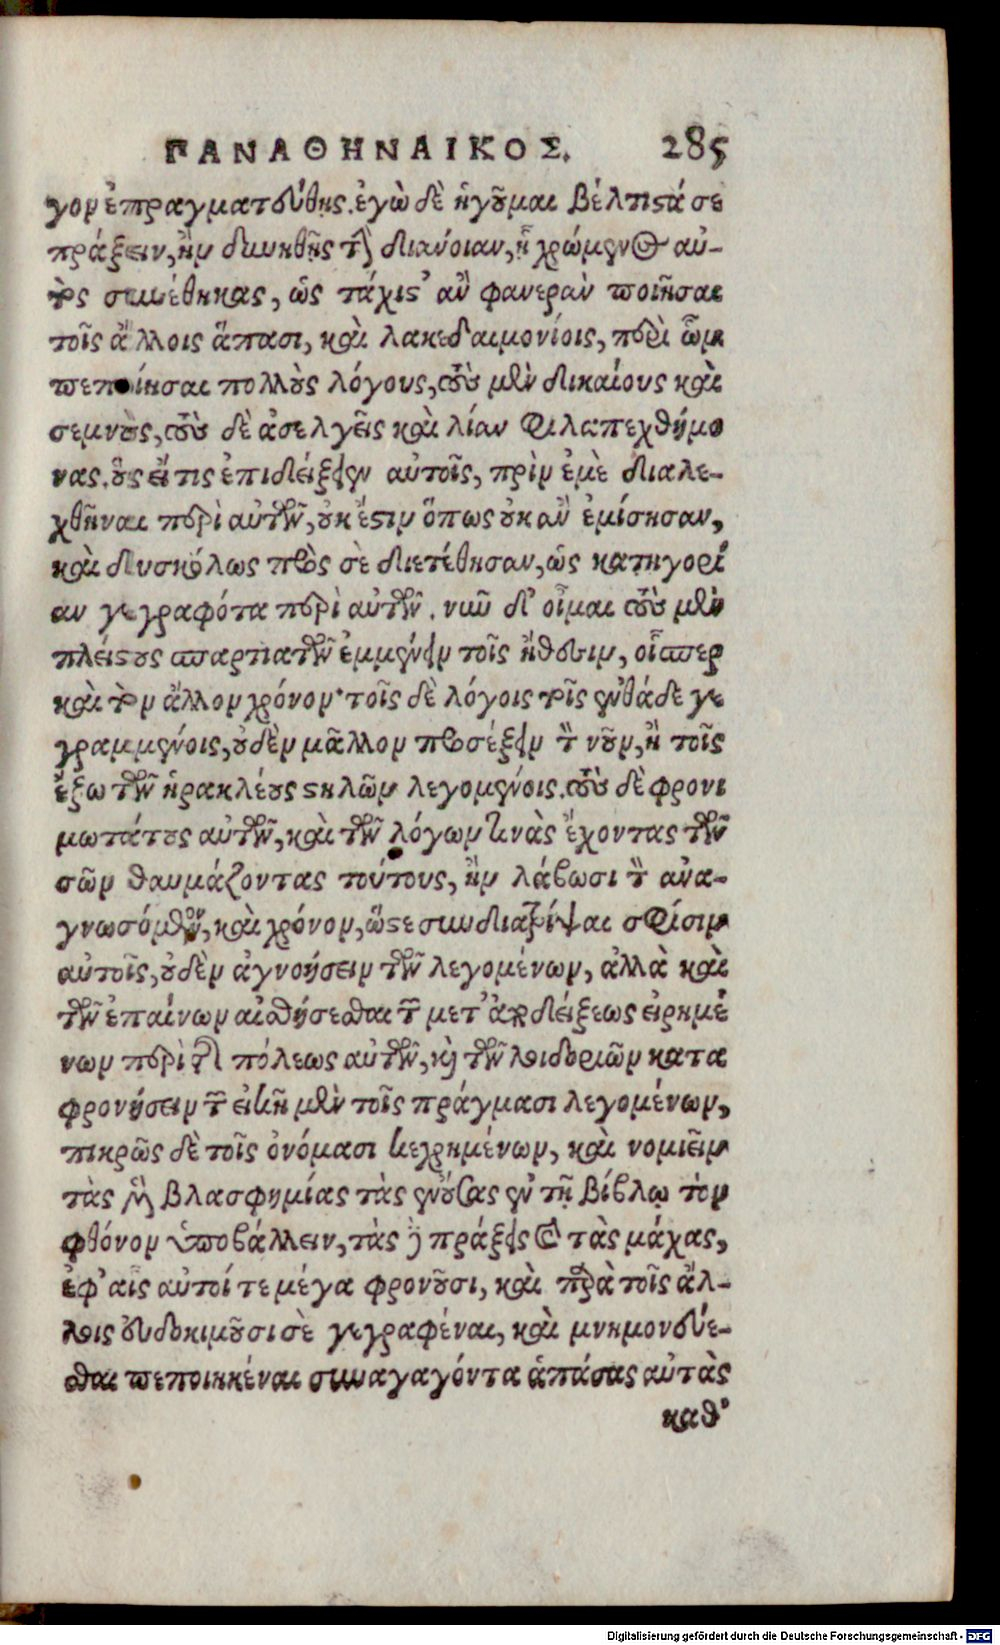 ΠΑΝΑΘΗΝΑΙΚΟΣ. 285
γον ἐπραγματεύθης. ἐγὼ δὲ ἡγοῦμαι βέλτιστά σε
πράξειν, ἢν δυνηθῇς τὴν διάνοιαν, ᾗ χρώμενος αὐ-
τὸς συνέθηκας, ὡς τάχιστ' ἂν φανερὰν ποιῆσαι
τοῖς ἄλλοις ἅπασι, καὶ λακεδαιμονίοις, περὶ ὧν
πεποίησαι πολλοὺς λόγους, τοὺς μὲν δικαίους καὶ
σεμνοὺς, τοὺς δὲ ἀσελγεῖς καὶ λίαν φιλαπεχθήμο
νας. οὓς εἴ τις ἐπιδείξειεν αὐτοῖς, πρὶν ἐμὲ διαλε-
χθῆναι περὶ αὐτῶν, οὐκ ἔστιν ὅπως οὐκ ἂν ἐμίσησαν,
καὶ δυσκόλως πρὸς σὲ διετέθησαν, ὡς κατηγορί
αν γεγραφότα περὶ αὐτῶν. νῦν δ' οἶμαι τοὺς μὲν
πλείστους σπαρτιατῶν ἐμμένειν τοῖς ἤθεσιν, οἷσπερ
καὶ τὸν ἄλλον χρόνον· τοῖς δὲ λόγοις τοῖς ἐνθάδε γε
γραμμένοις, οὐδὲν μᾶλλον προσέξειν τὸν νοῦν, ἢ τοῖς
ἔξω τῶν ἡρακλέους στηλῶν λεγομένοις. τοὺς δὲ φρονι
μωτάτους αὐτῶν, καὶ τῶν λόγων τινὰς ἔχοντας τῶν
σῶν θαυμάζοντας τούτους, ἢν λάβωσι τὸν ἀνα-
γνωσόμενον, καὶ χρόνον, ὥστε συνδιατρίψαι σφίσιν
αὐτοῖς, οὐδὲν ἀγνοήσειν τῶν λεγομένων, ἀλλὰ καὶ
τῶν ἐπαίνων αἰσθήσεσθαι τῶν μετ' ἀποδείξεως εἰρημέ
νων περὶ τῆς πόλεως αὐτῶν, καὶ τῶν λοιδοριῶν κατα
φρονήσειν τῶν εἰκῆ μὲν τοῖς πράγμασι λεγομένων,
πικρῶς δὲ τοῖς ὀνόμασι κεχρημένων, καὶ νομιεῖν
τὰς μὲν βλασφημίας τὰς ἐνούσας ἐν τῇ βίβλῳ τὸν
φθόνον ὑποβάλλειν, τὰς δὲ πράξεις καὶ τὰς μάχας,
ἐφ' αἷς αὐτοί τε μέγα φρονοῦσι, καὶ παρὰ τοῖς ἄλ-
λοις εὐδοκιμοῦσι σὲ γεγραφέναι, καὶ μνημονεύε-
σθαι πεποιηκέναι συναγαγόντα ἁπάσας αὐτὰς
καθ'
Digitalisierung gefördert durch die Deutsche Forschungsgemeinschaft - DFG